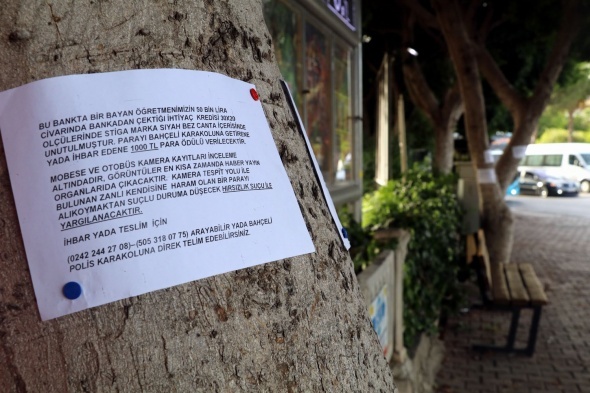 BU BANKTA BİR BAYAN ÖĞRETMENİMİZİN 50 BİN LİRA
CİVARINDA BANKADAN ÇEKTİĞİ İHTİYAÇ KREDİSİ 30X20
ÖLÇÜLERİNDE STİGA MARKA SİYAH BEZ CANTA İÇERİSİNDE
UNUTULMUŞTUR. PARAYI BAHÇELİ KARAKOLUNA GETİRENE
YADA İHBAR EDENE 1000 TL PARA ÖDÜLÜ VERİLECEKTİR.
MOBESE VE OTOBÜS KAMERA KAYITLARI İNCELEME
ALTINDADIR, GÖRÜNTÜLER EN KISA ZAMANDA HABER YAYIN
ORGANLARIDA ÇIKACATIR. KAMERA TESPİT YOLU İLE
BULUNAN ZANLI KENDİSİNE HARAM OLAN BİR PARAYI
ALIKOYMAKTAN SUÇLU DURUMA DÜŞECEK HIRSIZLIK SUÇU İLE
YARGILANACAKTIR.
İHBAR YADA TESLİM İÇİN
(0242 244 27 08)–(505 318 07 75) ARAYABİLİR YADA BAHÇELİ
POLİS KARAKOLUNA DİREK TELİM EDEBİLİRSİNİZ.